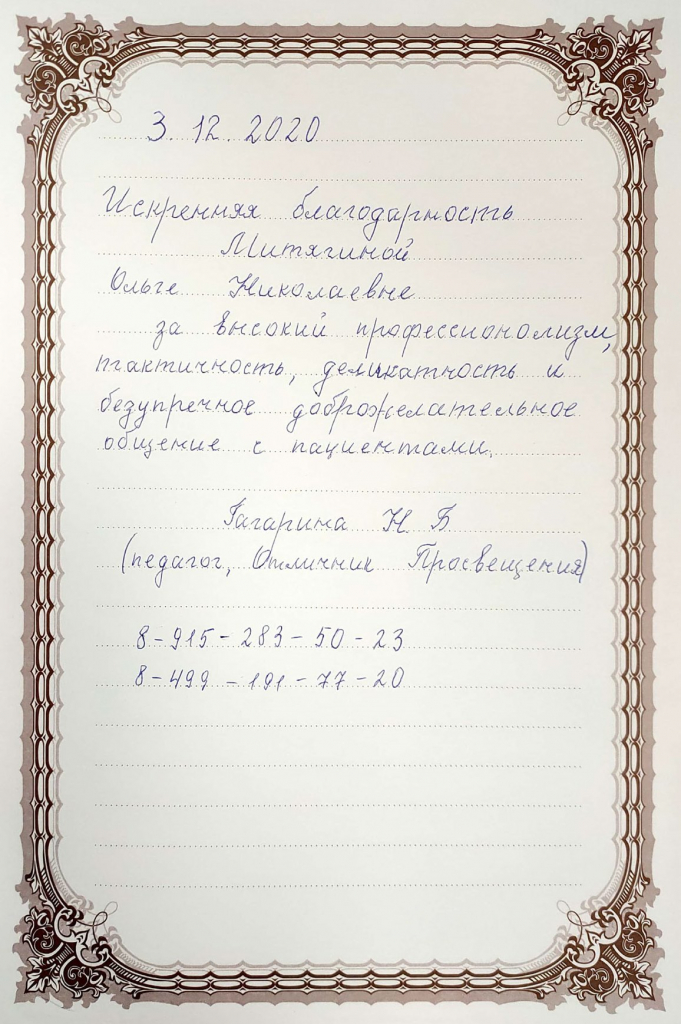 3. 12. 2020
Искренняя благодарность
Митягиной
Ольге Николаевне
за высокий профессионализм,
тактичность, деликатность и
безупречное доброжелательное
общение с пациентами.
Гагарина Н Б
(педагог, Отличник Просвещения)
8-915-283-50-23
8-499-191-77-20